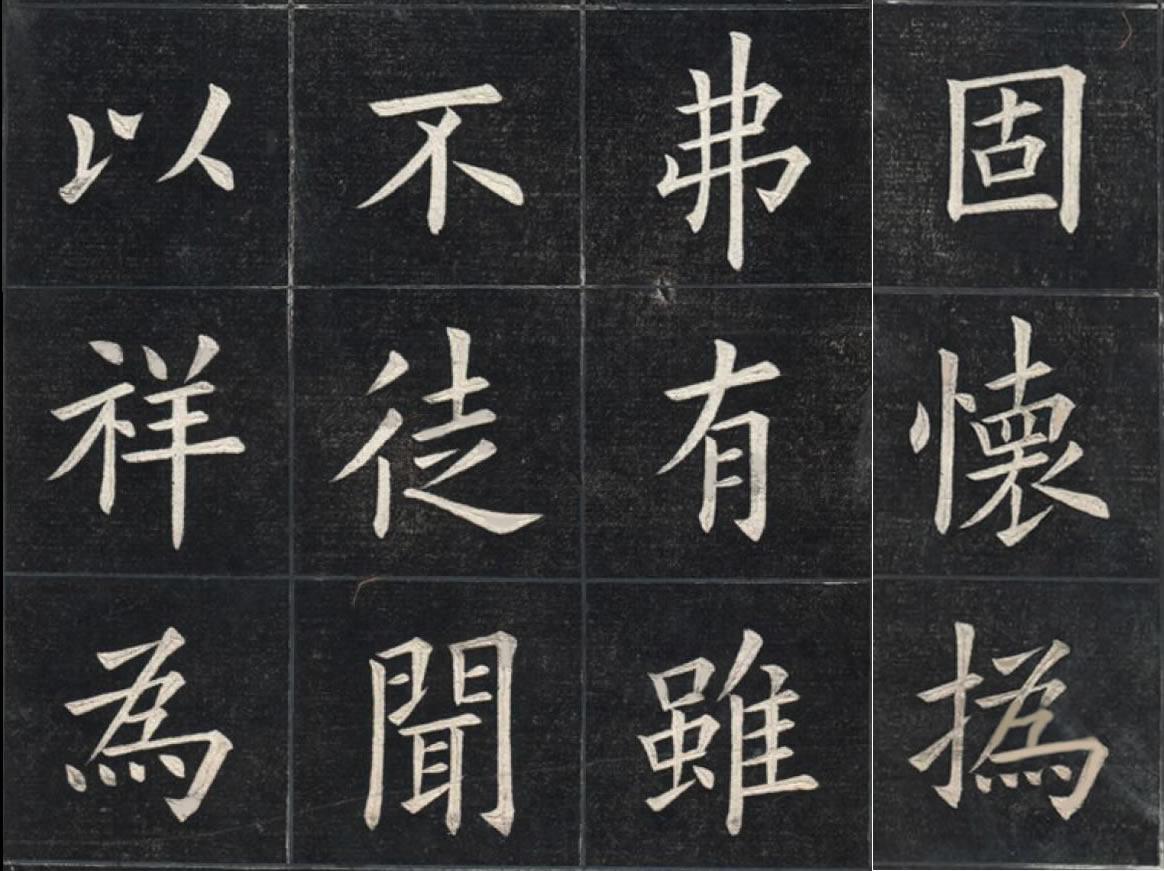 固懷撝
弗有雖
不徒聞
以祥為